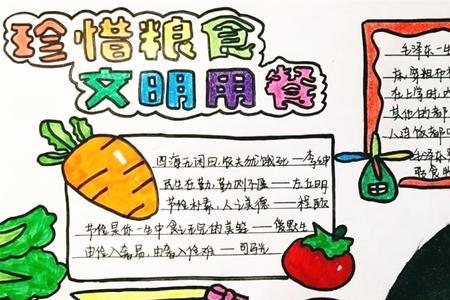 珍惜粮食
文明用餐
四海无闲田,农夫犹饿死——李绅
民生在勤,勤则不匮——左丘明
节俭朴素,人之美德——程敬
节俭是你一生中食之不完的美筵——爱默生
由俭入奢易,由奢入俭难——司马光
毛泽东一生
在上学时,
其他的都
人连饭都
毛泽东